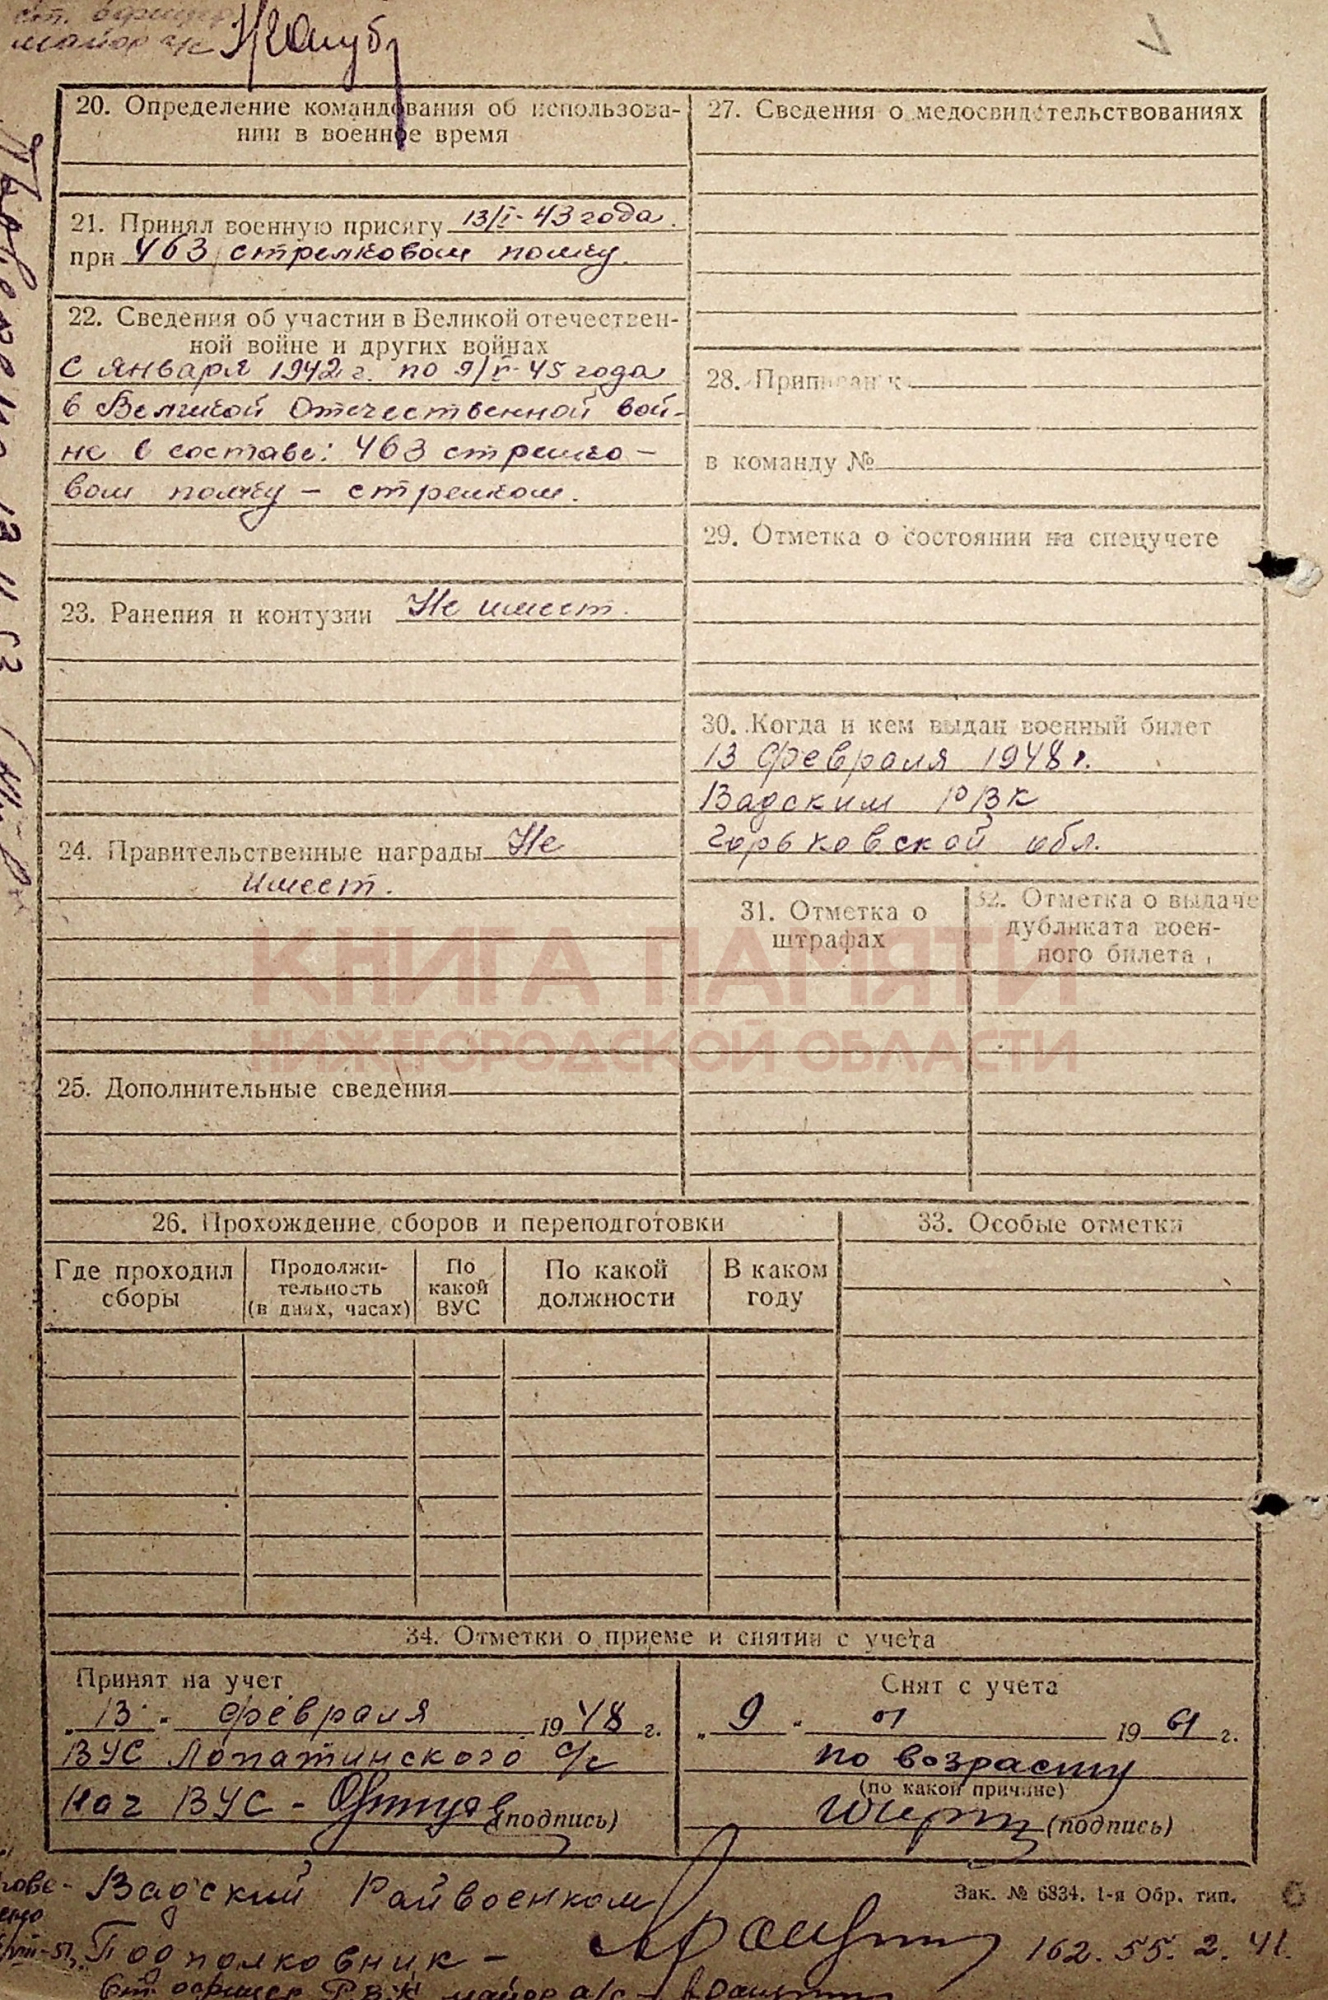 ст. офицер
майор а/с
20. Определение командования об использова-
нии в военное время
21. Принял военную присягу 13/I-43 года.
при 463 стрелковом полку.
22. Сведения об участии в Великой отечествен-
ной войне и других войнах
С января 1942 г. по 9/V-45 года
в Великой Отечественной вой-
не в составе: 463 стрелко-
вом полку – стрелком.
23. Ранения и контузии Не имеет.
24. Правительственные награды Не
имеет.
25. Дополнительные сведения
27. Сведения о медосвидетельствованиях
28. Приписан к
в команду №
29. Отметка о состоянии на спецучете
30. Когда и кем выдан военный билет
13 февраля 1948 г.
Вадским РВК
Горьковской обл.
31. Отметка о
штрафах
32. Отметка о выдаче
дубликата воен-
ного билета
КНИГА ПАМЯТИ
НИЖЕГОРОДСКОЙ ОБЛАСТИ
26. Прохождение сборов и переподготовки
Где проходил
сборы
Продолжи-
тельность
(в днях, часах)
По
какой
ВУС
По какой
должности
В каком
году
33. Особые отметки
34. Отметки о приеме и снятии с учета
Принят на учет
„13“ февраля 1948 г.
ВУС Лопатинского с/с
Нач ВУС -
(подпись)
Снят с учета
„9“ 01 1961 г.
по возрасту
(по какой причине)
(подпись)
Вадский Райвоенком
Зак. № 6834. 1-я Обр. тип.
Подполковник -
162. 55. 2. 41.
Ст. офицер РВК майор а/с